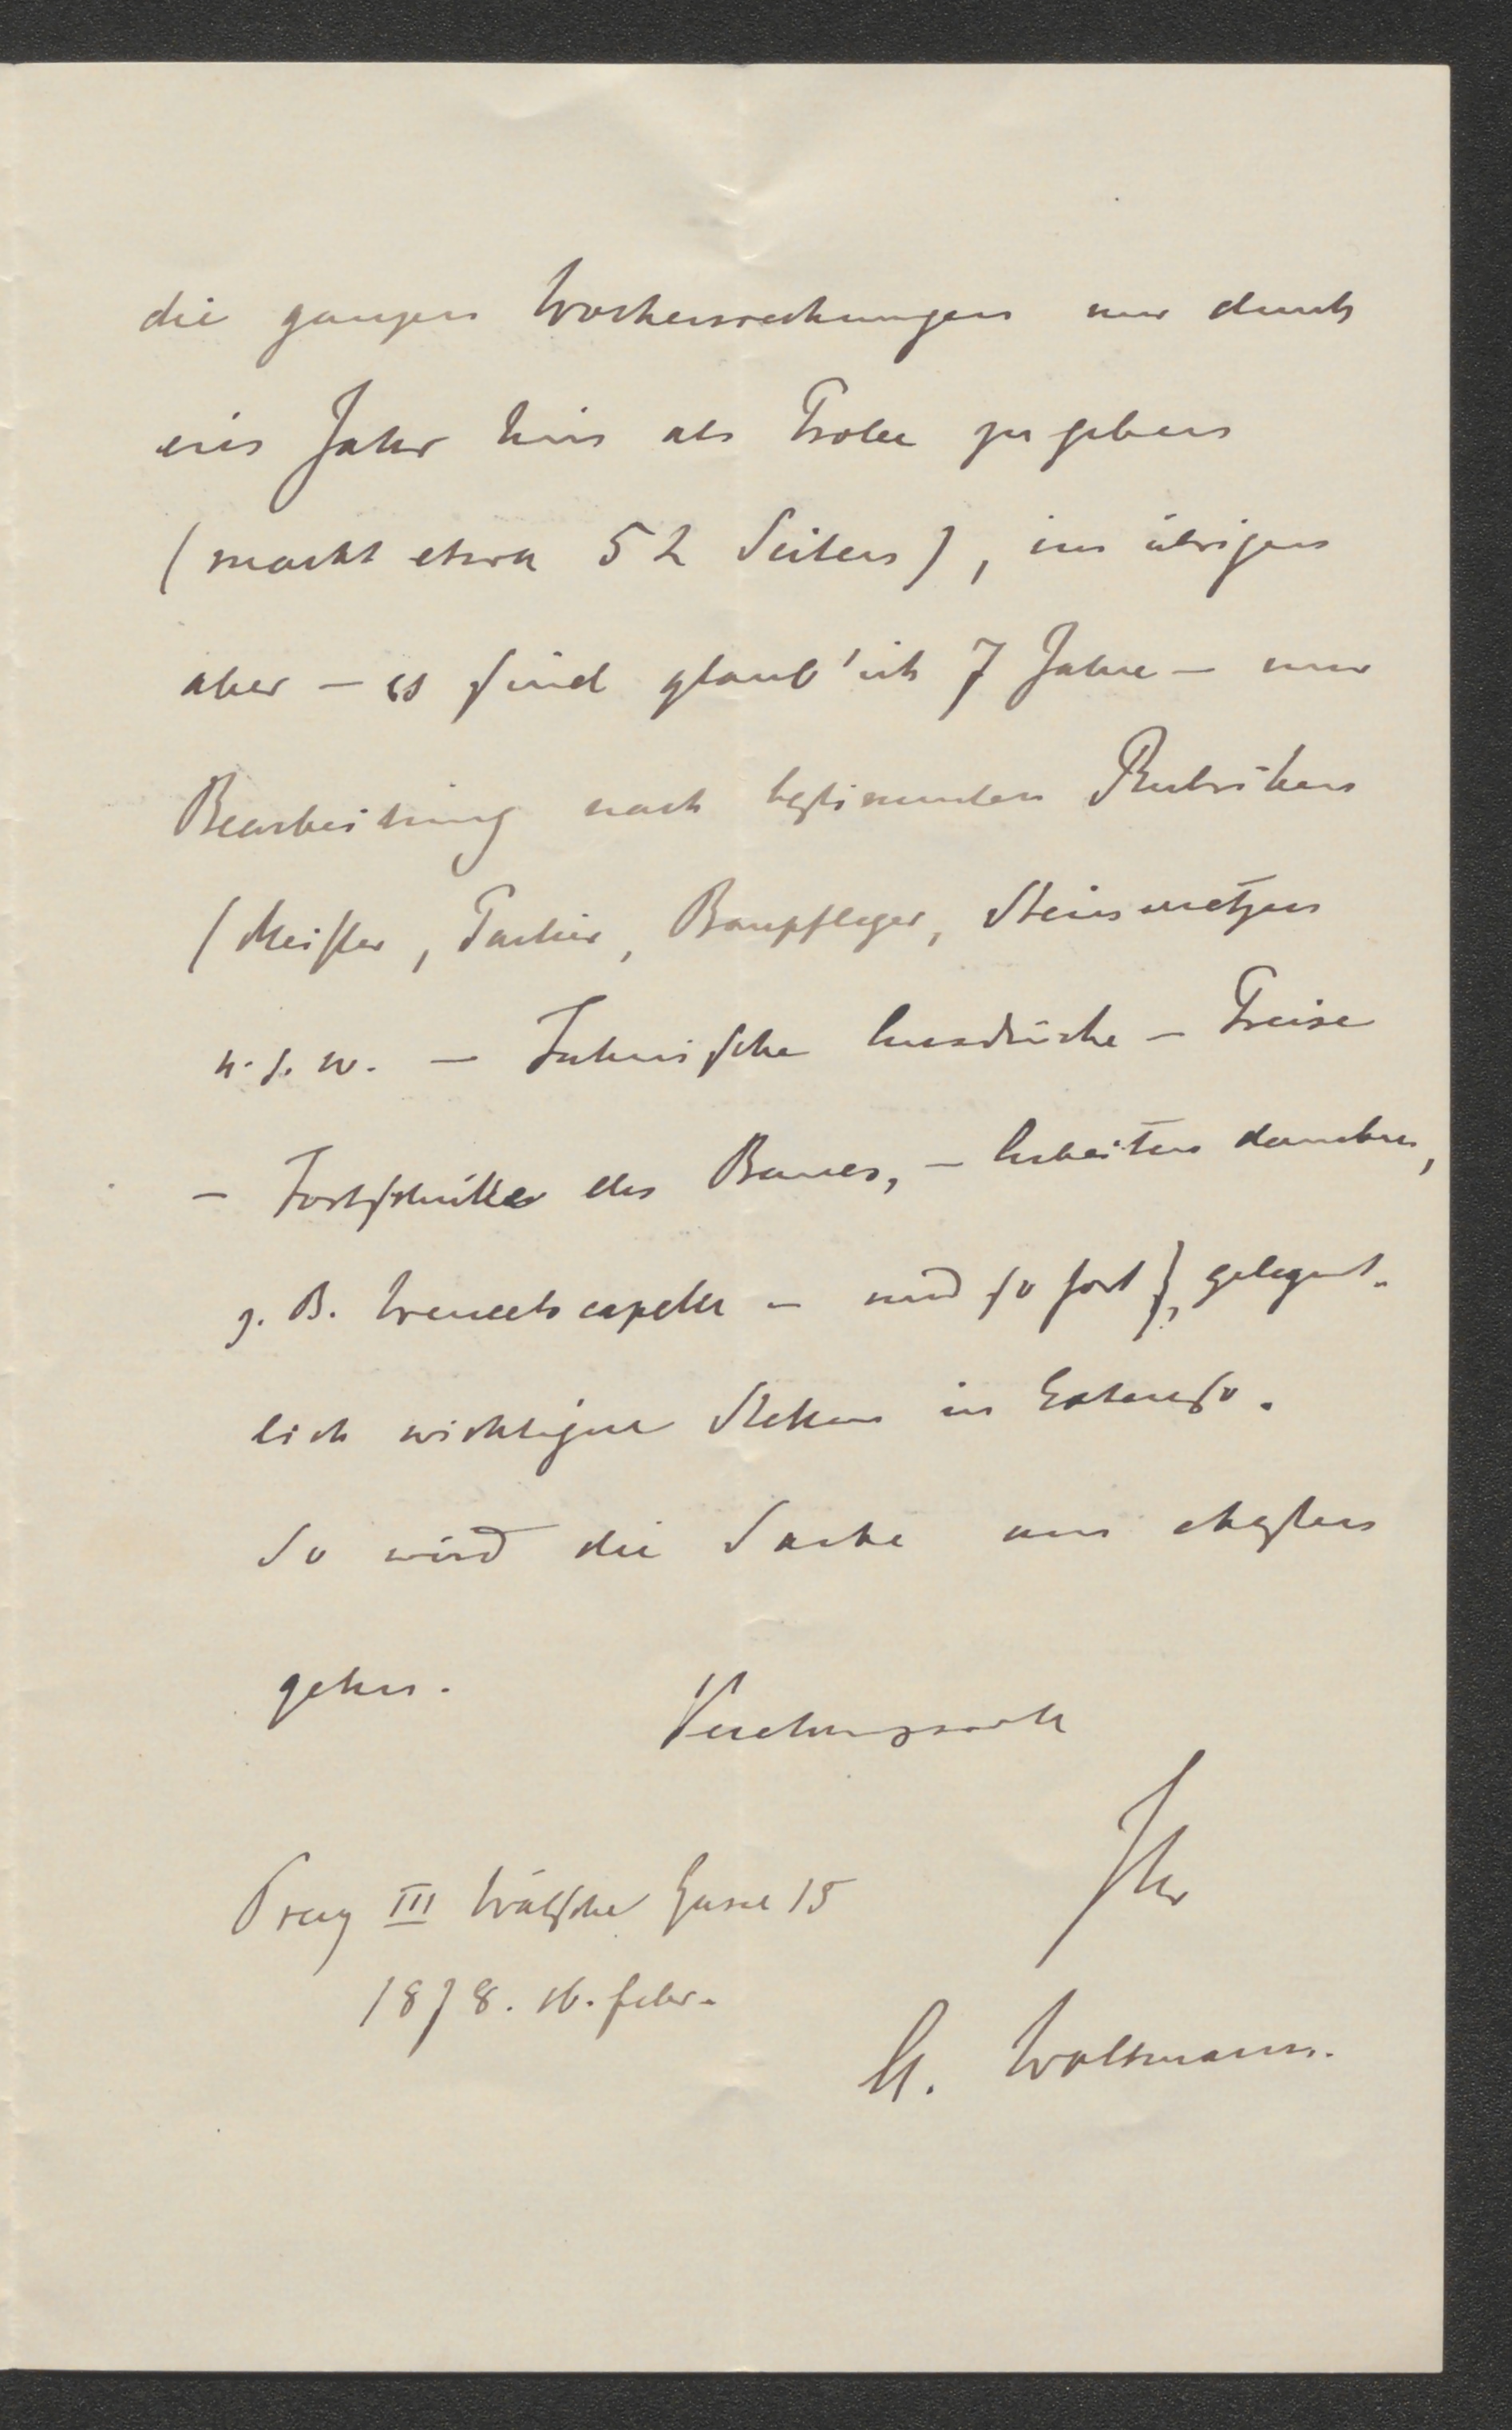 die ganzen Wochenrechnungen nur durch
ein Jahr hin als Probe zu geben
(macht etwa 52 Seiten), im übrigen
aber – es sind glaub' ich 7 Jahre – nur
Bearbeitung nach bestimmten Rubriken
(Meister, Parlier, Baupfleger, Steinmetzen
u. s. w. – Technische Ausdrücke – Preise
– Fortschritte des Baues, – Arbeiten daneben,
z. B. Wenzelscapelle – und so fort), gelegent-
lich wichtigere Stellen in Extenso.
So wird die Sache am ehesten
gehen.
Verehrungsvoll
Ihr
Prag III Wälsche Gasse 15
1878. 16. Febr.
A. Woltmann.